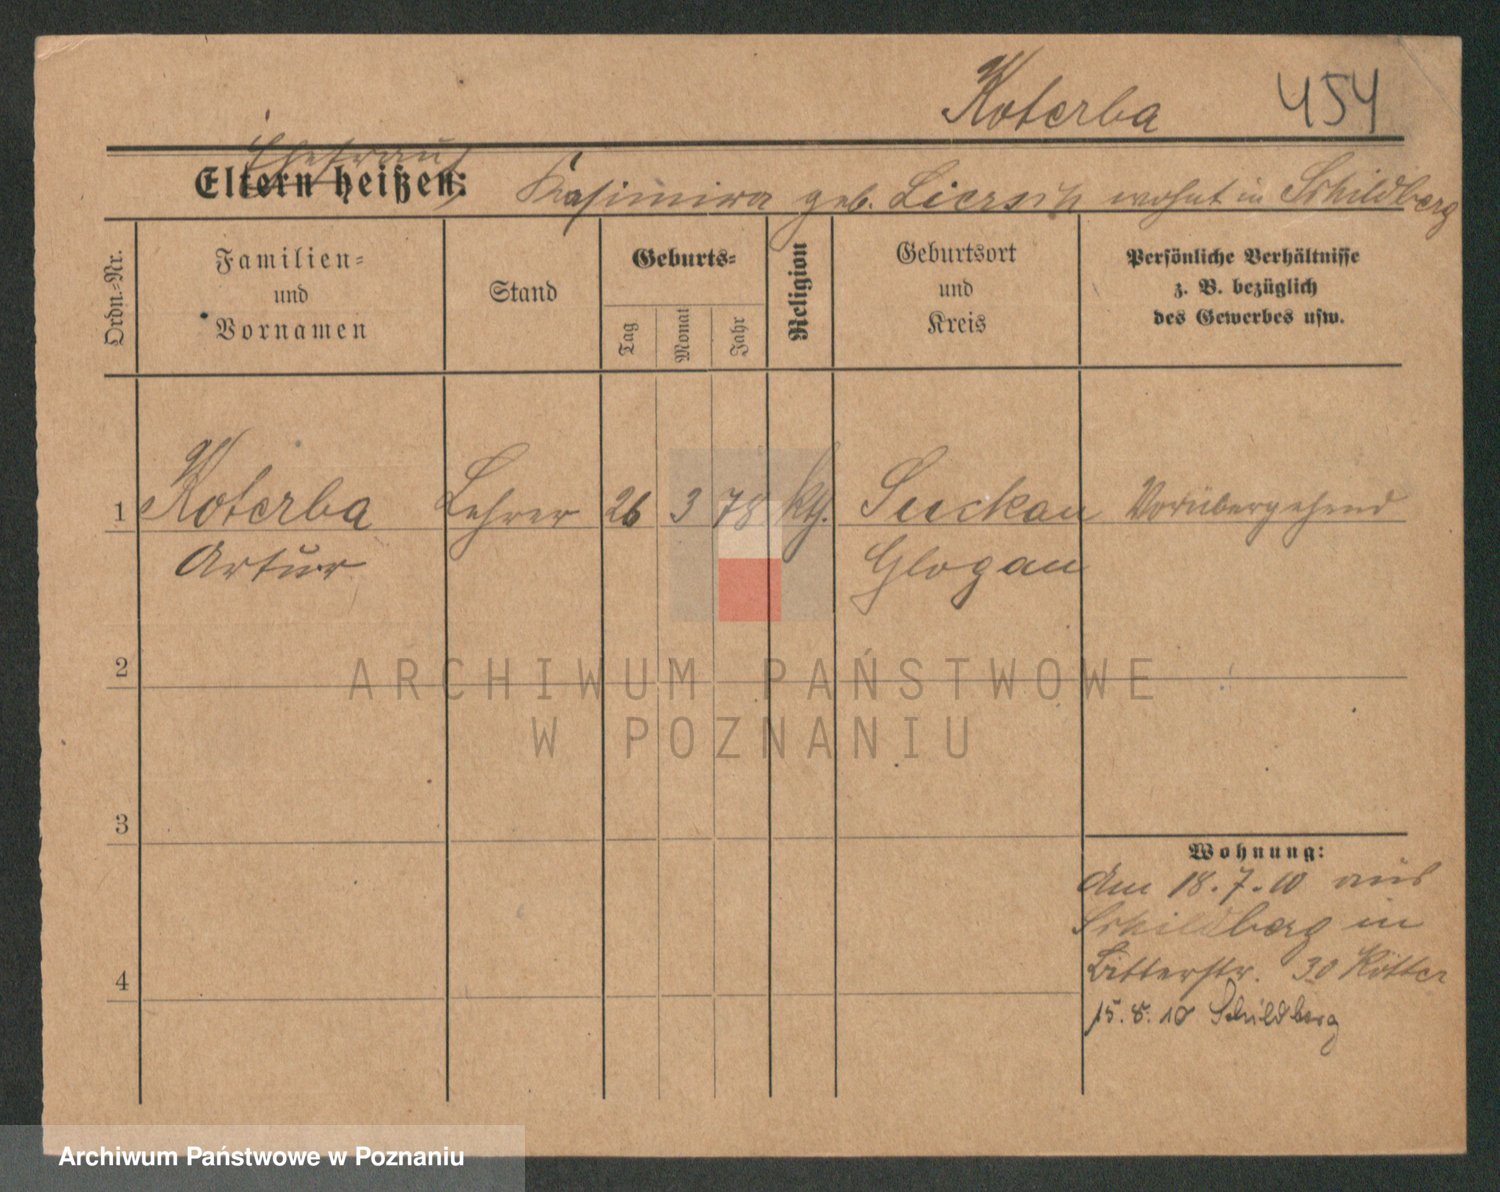 Koterba 454
Ehefrau
Eltern heißen: Kasimira geb. Liersch wohnt in Schildberg
Ordn.-Nr.
Familien-
und
Vornamen
Stand
Geburts-
Tag
Monat
Jahr
Religion
Geburtsort
und
Kreis
Persönliche Verhältnisse
z. B. bezüglich
des Gewerbes usw.
1 Koterba Lehrer 26 3 78 kth. Suckau Vorübergehend
Artur Glogau
2
3
4
Wohnung:
Am 18.7.10 aus
Schildberg in
Bitterstr. 30 Kötter
15.8.10 Schildberg
ARCHIWUM PAŃSTWOWE
W POZNANIU
Archiwum Państwowe w Poznaniu